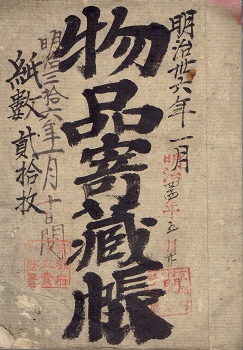 明治卅六年一月
明治四年五月止
物品寄蔵帳
明治三拾六年一月十日閲
紙數貳拾枚